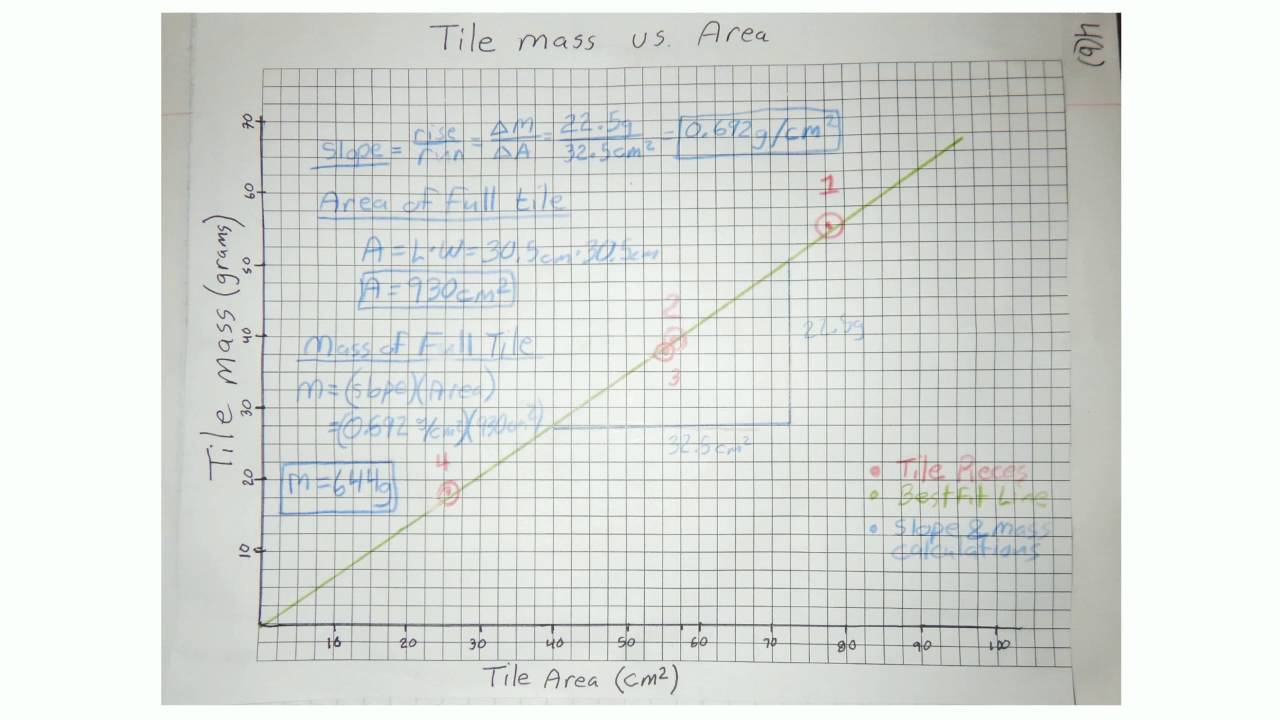 Tile mass vs. Area
4(b)
slope = rise/run = ΔM/ΔA = 22.5g/32.5cm² = 0.692g/cm²
Area of Full tile
A = L·W = 30.5cm·30.5cm
A = 930cm²
Mass of Full Tile
m = (slope)(Area)
= (0.692 g/cm²)(930cm²)
m = 644g
1
2
3
4
22.5g
32.5cm²
Tile Pieces
Best Fit Line
Slope & mass
calculations
Tile Mass (grams)
70
60
50
40
30
20
10
10 20 30 40 50 60 70 80 90 100
Tile Area (cm²)